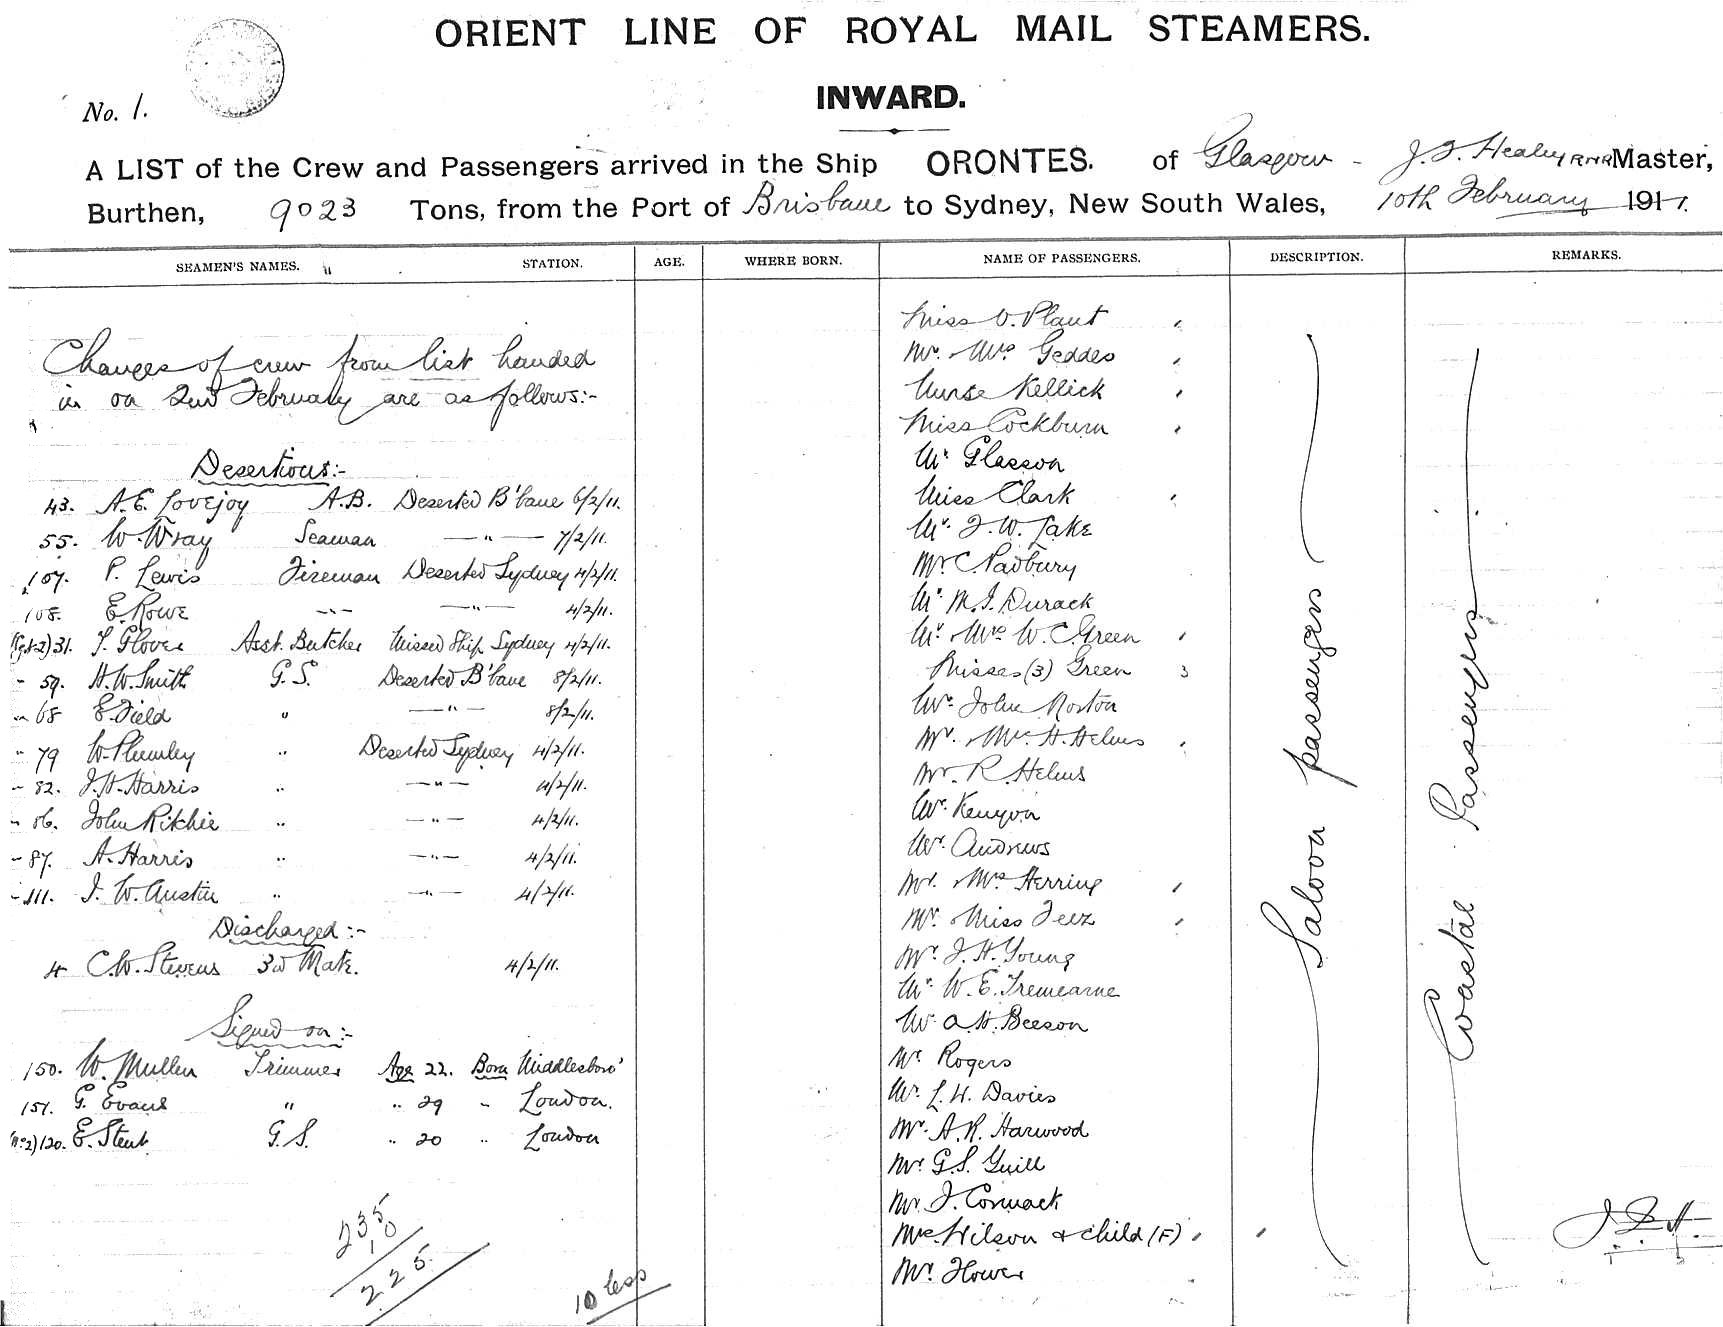 ORIENT LINE OF ROYAL MAIL STEAMERS.
INWARD.
No. 1.
A LIST of the Crew and Passengers arrived in the Ship ORONTES. of Glasgow - J. F. Healey RNR Master,
Burthen, 9023 Tons, from the Port of Brisbane to Sydney, New South Wales, 10th February 1911.
SEAMEN'S NAMES. STATION. AGE. WHERE BORN. NAME OF PASSENGERS. DESCRIPTION. REMARKS.
Changes of crew from list handed
in on 2nd February are as follows:-
Desertions:-
43. A. E. Lovejoy A.B. Deserted B'bane 6/2/11.
55. W. Wray Seaman —"— 7/2/11.
107. P. Lewis Fireman Deserted Sydney 4/2/11.
108. E. Rowe —"— —"— 4/2/11.
31. T. Glover Asst. Butcher Missed Ship Sydney 4/2/11.
" 59. H. W. Smith G.S. Deserted B'bane 8/2/11.
" 68 E. Field " —"— 8/2/11.
" 79 W. Plumley " Deserted Sydney 4/2/11.
" 82. J. H. Harris " —"— 4/2/11.
" 86. John Ritchie " —"— 4/2/11.
" 87. A. Harris " —"— 4/2/11.
" 111. J. W. Austin " —"— 4/2/11.
Discharged:-
4 C. W. Stevens 3rd Mate. 4/2/11.
Signed on:-
150. W. Mullen Trimmer Age 22. Born Middlesboro'
151. G. Evans " " 29 " London.
(No 2) 120. E. Stent G.S. " 20 " London
235
10
225.
10 less
Miss V. Plant
Mr. Mrs Geddes
Nurse Kellick
Miss Cockburn
Mr Glasson
Miss Clark
Mr. F. W. Lake
Mr C. Padbury
Mr M. J. Durack
Mr. Mrs W. C. Green
Misses (3) Green 3
Mr. John Norton
Mr. Mrs H. Helms
Mr. R. Helms
Mr. Kenyon
Mr. Andrews
Mr. Mrs Herring
Mr. Miss Feez
Mr J. H. Young
Mr. W. E. Tremearne
Mr A. H. Beeson
Mr Rogers
Mr. L. H. Davies
Mr. A. R. Harwood
Mr. G. S. Yuill
Mr. J. Cormack
Mrs. Wilson & child (F)
Mr. Hower
Saloon passengers
Coastal Passengers
J. F. H.